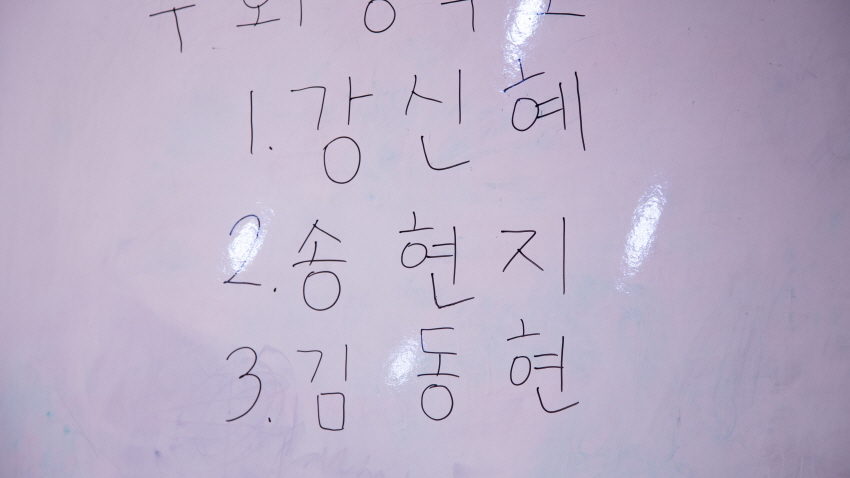 1. 강신혜
2. 송현지
3. 김동현